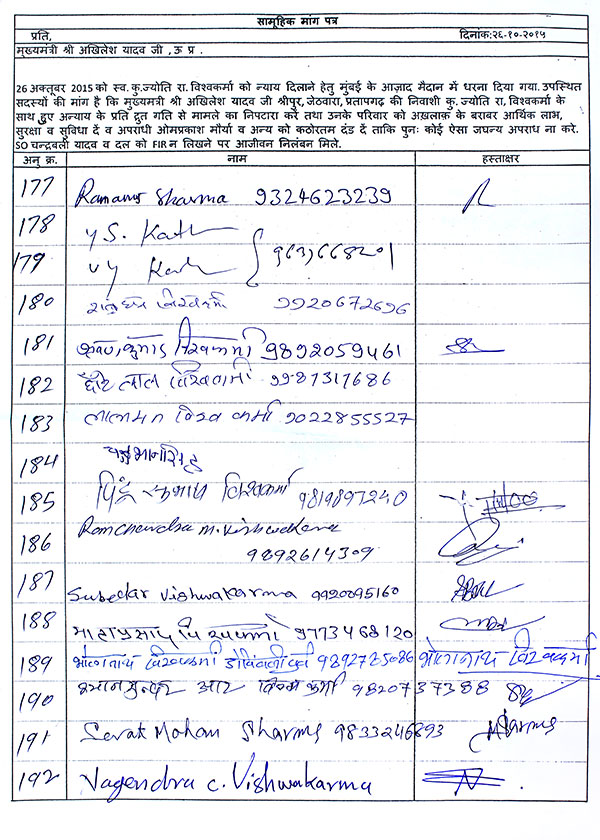 सामूहिक मांग पत्र
प्रति, दिनांक:२६-१०-२०१५
मुख्यमंत्री श्री अखिलेश यादव जी , ऊ प्र .
26 अक्तूबर 2015 को स्व. कु.ज्योति रा. विश्वकर्मा को न्याय दिलाने हेतु मुंबई के आज़ाद मैदान में धरना दिया गया. उपस्थित
सदस्यों की मांग है कि मुख्यमंत्री श्री अखिलेश यादव जी श्रीपुर, जेठवारा, प्रतापगढ़ की निवाशी कु. ज्योति रा, विश्वकर्मा के
साथ हुए अन्याय के प्रति द्रुत गति से मामले का निपटारा करें तथा उनके परिवार को अख़लाक़ के बराबर आर्थिक लाभ,
सुरक्षा व सुविधा दें व अपराधी ओमप्रकाश मौर्या व अन्य को कठोरतम दंड दें ताकि पुनः कोई ऐसा जघन्य अपराध ना करे.
SO चन्द्रबली यादव व दल को FIR न लिखने पर आजीवन निलंबन मिले.
अनु क्र. नाम हस्ताक्षर
177 Ramanuj Sharma 9324623239
178 y S. Kath
179 vy Kath
180 9920672696
181 विश्वकर्मा 9892059461
182 लाल विश्वकर्मा 9987317686
183 लालमन विश्व कर्मा 9022855527
184
185 विश्वकर्मा 9819897240
186 Ramchandra M. Vishwakarma
9892614309
187 Subedar Vishwakarma 9920095160
188 9773468120
189 भोलानाथ विश्वकर्मा डोंबिवली पूर्व 9892785086 भोलानाथ विश्वकर्मा
190 आर विश्वकर्मा 9820737388
191 Sarat Mohan Sharma 9833246893
192 Nagendra C. Vishwakarma